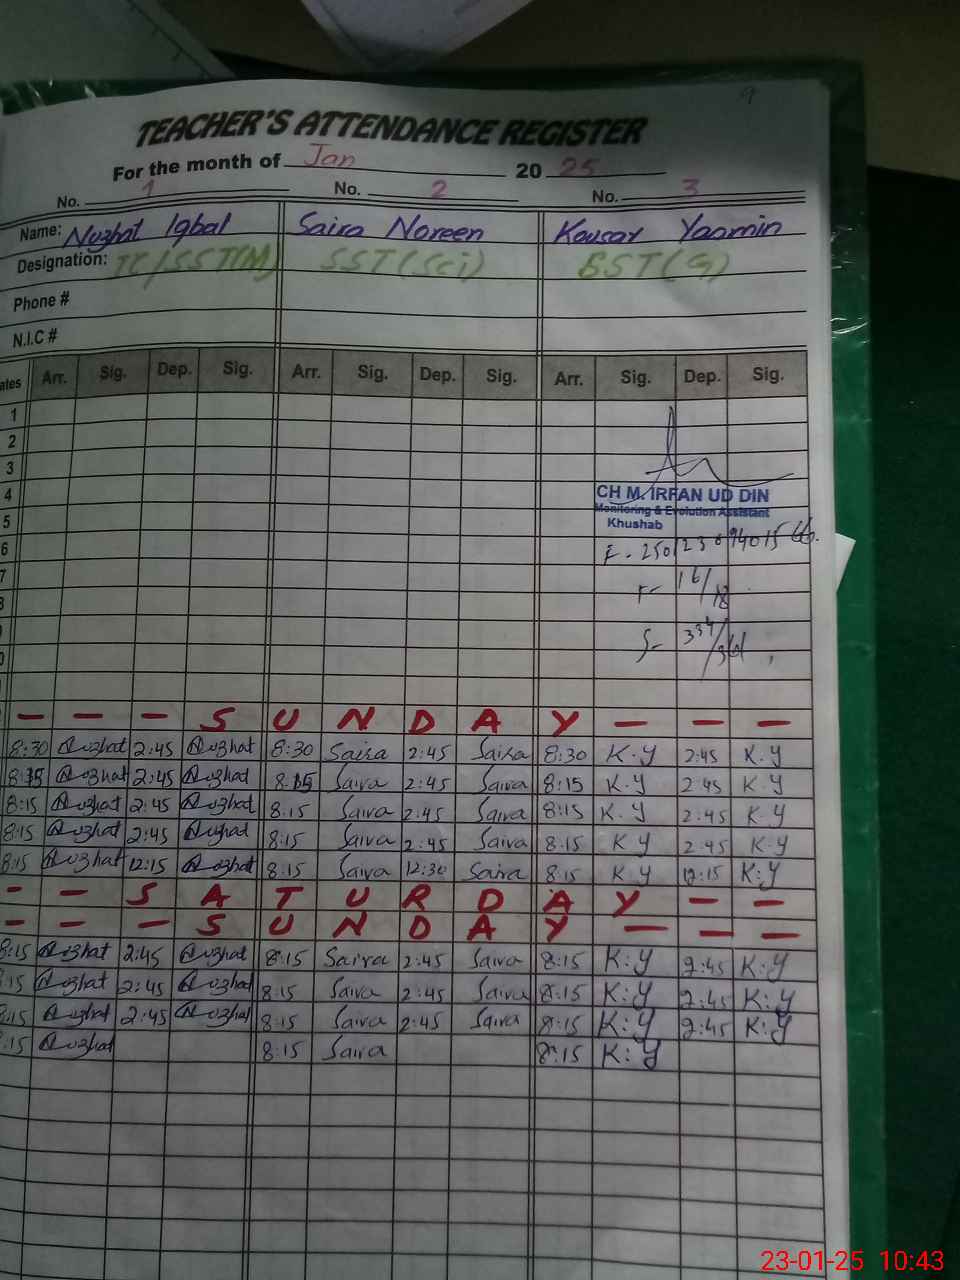 9
TEACHER'S ATTENDANCE REGISTER
For the month of Jan 20 25
No. 1 No. 2 No. 3
Name: Nuzhat Iqbal Saira Noreen Kousar Yasmin
Designation: IC/SST(M) SST(Sci) EST(G)
Phone #
N.I.C #
ates Arr. Sig. Dep. Sig. Arr. Sig. Dep. Sig. Arr. Sig. Dep. Sig.
1
2
3
4 CH M. IRFAN UD DIN
Monitoring & Evolution Assistant
5 Khushab
6
7 16/18
S U N D A Y
8:30 Nuzhat 2:45 Nuzhat 8:30 Saira 2:45 Saira 8:30 K.Y 2:45 K.Y
8:15 Nuzhat 2:45 Nuzhat 8:15 Saira 2:45 Saira 8:15 K.Y 2:45 K.Y
8:15 Nuzhat 2:45 Nuzhat 8:15 Saira 2:45 Saira 8:15 K.Y 2:45 K.Y
8:15 Nuzhat 2:45 Nuzhat 8:15 Saira 2:45 Saira 8:15 K Y 2:45 K.Y
8:15 Nuzhat 12:15 Nuzhat 8:15 Saira 12:30 Saira 8:15 K.Y 12:15 K:Y
S A T U R D A Y
S U N D A Y
8:15 Nuzhat 2:45 Nuzhat 8:15 Saira 2:45 Saira 8:15 K:Y 2:45 K:Y
:15 Nuzhat 2:45 Nuzhat 8:15 Saira 2:45 Saira 8:15 K:Y 2:45 K:Y
:15 Nuzhat 2:45 Nuzhat 8:15 Saira 2:45 Saira 8:15 K:Y 2:45 K:Y
:15 Nuzhat 8:15 Saira 8:15 K:Y
23-01-25 10:43